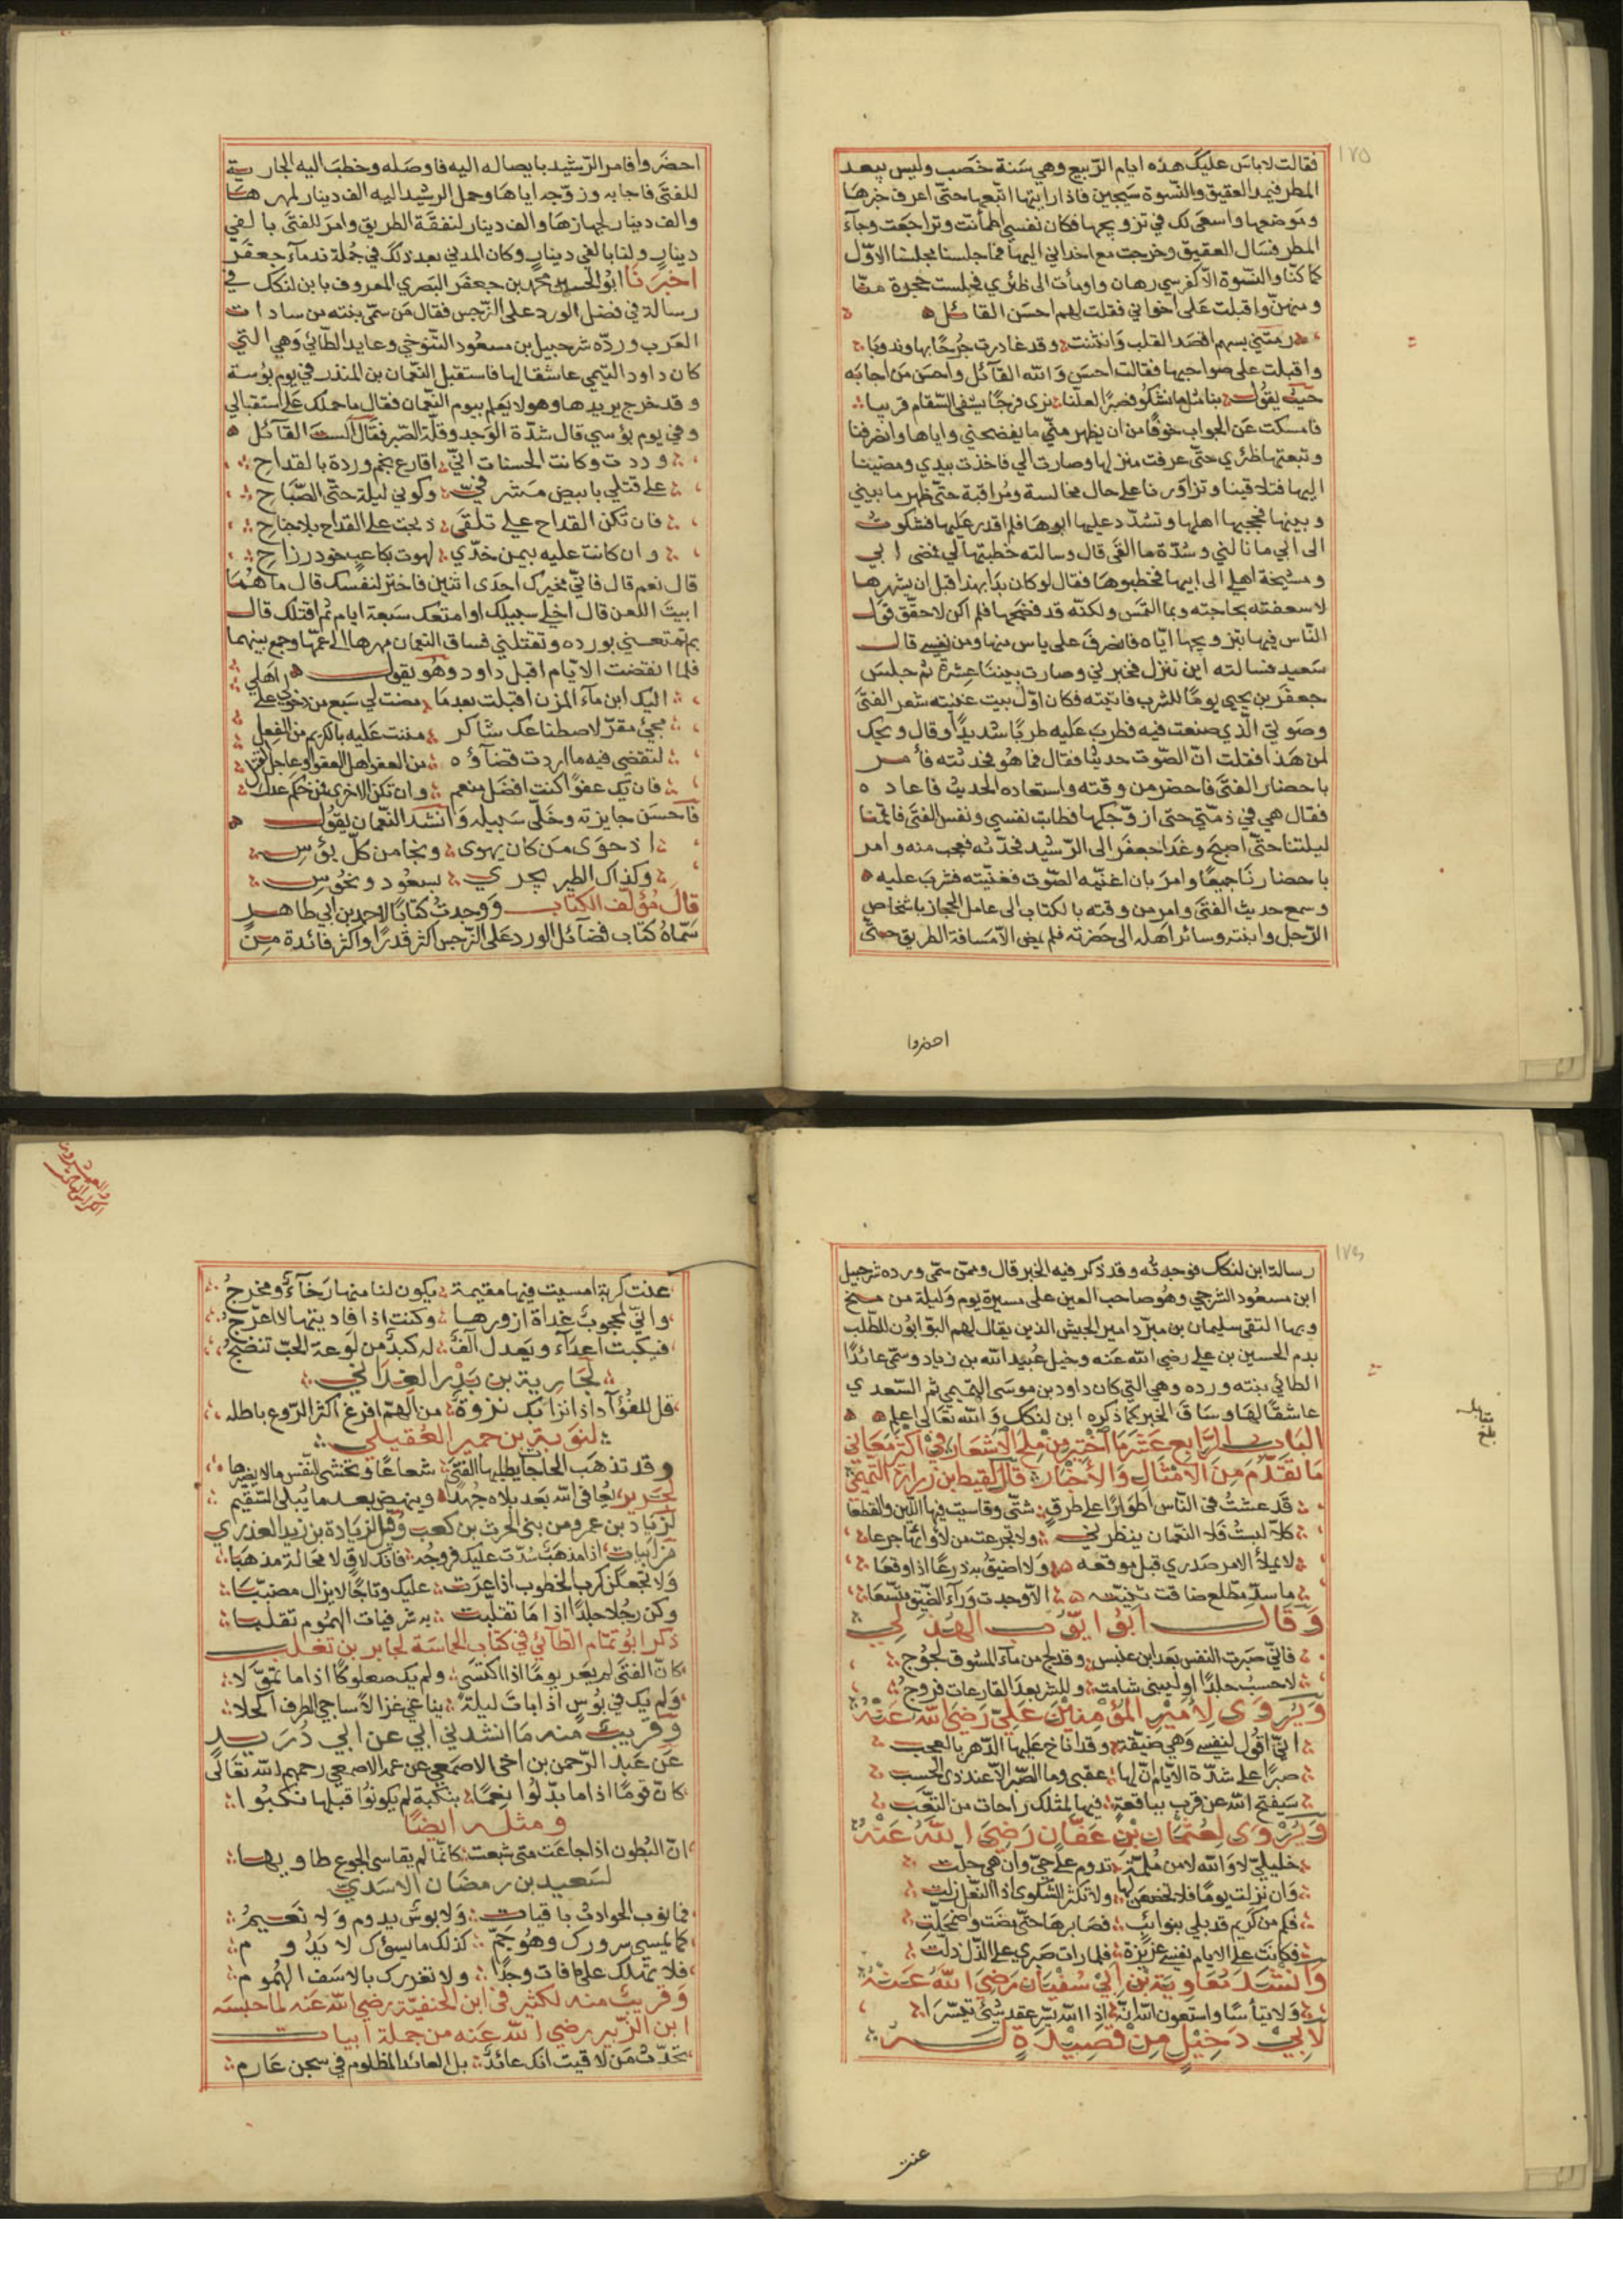 ١٧٥
فقالت لاباس عليك هذه ايام الربيع وهي سَنة خَصب وليس يبعد
المطر فيمد العقيق والنّسوة سَيَجين فاذا رايتها اتبعها حتّى اعرف خبرهَا
وموَضعها واسعَى لك في تزويجها فكان نفسي اطمأنت وتراجعَت وجآء
المطر فسَال العقيق وخرجت مع اخداني اليها فما جلسنا مجلسنا الاوّل
كما كنّا والنّسوة الّا كفرسي رهان واومأت الى ظئري فجلست حجرة منّا
ومنهنّ واقبلت عَلى اخواني فقلت لهم احسَن القائل
رَمَتني بسهم اقصَد القلب وَانثنت وقد غادرت جُرحًا بها وندوبَا
واقبلت على صواحبها فقالت احسَن وَالله القآئل واحسَن مَن اجابَه
حَيث يقول بنا مثل ما تشكو فصبرًا لعلّنا نرى فرجًا يشفى السّقام قريبا
فامسكت عَن الجواب خوفًا من ان يظهر منّي ما يفضحني واياها وانصرفنا
وتبعتها ظئري حتّى عرفت منزلها وصارت الي فاخذت بيدي ومضينا
اليها فتلاقينا وتزاوَرنا على حال مخالسة ومُراقبة حتّى ظهر ما بيني
وبينها فحجبها اهلها وتشدّد عليها ابوها فلم اقدر عَليها فشكوت
الى ابي ما نالني وشدّة ما القَى قال وسالته خطبتها لي فمضى ابي
ومشيخة اهلي الى ابيها فخطبوهَا فقال لو كان بَدَا بهذا قبل ان يشهرها
لاسعفته بحاجته وبما التمسَ ولكنّه قد فضحها فلم اكن لاحقّق قوَل
النّاس فيها بتزويجها ايّاه فانصَرفَ على ياس منها ومن نفسي قال
سَعيد فسالته اين تنزل فخبرني وصارت بيننَا عِشرَة ثم جلسَ
جعفرَ بن يحيى يومًا للشرب فاتيته فكان اوّل بيت غنيته شعر الفتَى
وصَوتي الّذي صنعت فيه فطربَ عَليه طربًا شديدًا وقال ويحك
لمن هَذا فقلت انّ الصّوت حديثًا فقال فما هُو فحدثته فأمر
باحضار الفتَى فاحضر من وقته واستعاده الحديث فاعاده
فقال هي في ذمّتي حتى ازوّجكها فطابت نفسي ونفس الفتَى فاقمنا
ليلتنا حتّى اصبحَ وغدَا جعفَر الى الرّشيد فحدّثه فعجب منه وامر
باحضارنَا جميعًا وامرَ بان اغنّيه الصّوت فغنّيته فشربَ عليه
وسمع حديث الفتَى وامر من وقته بالكتاب الى عامل الحجاز باشخاص
الرّجل وابنته وسائر اهله الى حَضرته فلم يمض الّا مسَافة الطريق حتّى
احضروا
احضرَوا فامر الرّشيد بايصاله اليه فاوصَله وخطبَ اليه الجارية
للفتَى فاجابه وزوّجه اياهَا وحمل الرشيد اليه الف دينار لمهرهَا
والف دينار لجهازهَا والف دينار لنفقَة الطريق وامرَ للفتَى بالفي
دينارٍ ولنا بالفي دينارٍ وكان المدني بعد ذلكَ في جُملة ندمآء جعفَر
اخبرَنَا ابُو الحسين محمّد بن جعفَر البَصري المعروف بابن لنكك في
رسالة في فضل الورد على النّرجس فقال مَن سمّى بنته من سادات
العَرب وردَه شرحبيل بن مسعُود التنّوخي وعايد الطّائي وَهي التي
كان داود التيمي عاشقا لها فاستقبل النّعمان بن المنذر في يوم بؤسه
وقد خرج يريدها وهو لا يعَلم بيوم النّعمان فقال ما حملك عَلى استقبالي
وفي يوم بؤسي قال شدّة الوَجد وقلّة الصّبر فقال الستَ القآئل
وددت وكانت الحسنات انّي اقارع نجم وردة بالقداح
على قتلي بابيض مَشرفيّ وكوني ليلة حتّى الصّبَاح
فان تكن القداح علي تلقَى ذبحت على القداح بلا جناح
وان كانت عليه بيمن خدّي لهوت بكاعب خود رزاح
قال نعم قال فانّي مخيرك احدَى اثنين فاختر لنفسك قال ماهُمَا
ابيتَ اللعن قال اخلي سبيلك او امتعك سَبعة ايام ثم اقتلك قال
بل تمتعني بورده وتقتلني فساق النعمان مهرها الى عمّها وجمع بينهما
فلما انقضت الايّام اقبل داود وهُو يقول
اليك ابن مآء المزن اقبلت بعد مَا مضت لي سَبع من دخولي على اهَلي
مجئ مقرّ لاصطناعك شاكر مننت عَليه بالكريم من الفِعلِ
لتقضي فيه ما اردت قضآؤه من العفو اهل العفو او عاجل القتل
فان يك عفوًا كنت افضل منعم وان تكن الاخرى فمن حَكم عدل
فاحسَن جايزته وخلّى سَبيله وَانشد النّعمان يقوُل
اذ حوَى مَن كان يهوَى ونجا من كلّ بؤسِ
وكذاك الطير يجري بسعُود ونحُوسِ
قالَ مُؤلّف الكتاب وَوجدتُ كتابًا لاحمد بن ابي طاهر
سَمّاهُ كتاب فضآئل الورد عَلى النّرجس اكثر قدرًا واكثر فائدة من
١٧٦
رسالة ابن لنكك فوجدته وقد ذكر فيه الخبر قال وممّن سمّى ورده شرحبيل
ابن مسعُود التنوخي وهُو صاحب العين على مسيرة يوم وَليلة من منبج
وبها التقى سليمان بن صرد امير الجيش الذين يقال لهم التوّابُون للطّلب
بدم الحسين بن علي رضي الله عَنه وخيل عُبيد الله بن زياد وسمّى عائذًا
الطائي بنته ورده وهي التي كان داود بن موسَى التيمي ثم السّعدي
عاشقًا لهَا وسَاقَ الخبر كما ذكره ابن لنكك وَالله تعَالى اعلم
البَاب الرّابع عَشَر مَا اخْتِير مِنْ مُلَح الاشعَار في اكثَر مَعَاني
مَا تقَدّم مِنَ الامثَال وَالأخبَار قال لقيط بن زرارة التّميمي
قَد عشتُ في النّاس اطوَارًا على طرقٍ شتّى وقاسيت فيها اللّين والفظعا
كلّا لبستُ فَلا النّعمان ينظرني ولا تجرعت من لأوائها جرعا
لا يملأ الامر صَدري قبل موقعه وَلا اضيقُ به ذرعًا اذا وقعَا
ما سدّ مطلع ضاقت ثنيّته الّا وجدت وَرآء الضّيق متّسعَا
وَقَال ابُو ايّوب الهُذلي
فانّي صَبرت النفس بَعد ابن عنبس وقد لج من مآء الشؤن لجُوج
لاحسب جلدًا او لينبئ شامت وللشر بعدَ القارعات فروج
وَيُروَى لِأمِيْر المُؤمِنيْنَ عَلِيّ رَضيَ الله عَنْهُ
انّي اقُول لنفسي وَهي ضَيقَة وقد اناخ عَليها الدّهر بالعجب
صبرًا على شدّة الايّام انّ لها عقبى وما الصّبر الّا عند ذي الحسب
سَيفتح الله عن قرب بناقعة فيها لمثلك راحات من التّعب
وَيُرْوَى لِعُثمَان بن عَفّان رَضِيَ اللهُ عَنْهُ
خليليّ لا وَالله لا من مُلمّة تدوم على حَيّ وان هي جلّت
وَان نزلت يومًا فلا تخضعن لها ولا تكثر الشّكوى اذا النّعل زلت
فكم من كريم قد بلي بنوائب فصَابرهَا حتّى مضَت واضمحَلّت
فكانَت على الايام نفسي عزيزة فلما رات صَبري على الذّل ذلّت
وَانشَدَ مُعَاوِيَة بْن ابِيْ سُفيَان رَضيَ اللهُ عَنْهُ
وَلا تيأسَا واستعون الله انّه اذا الله يسّر عقد شيئ تيسّرَا
لابِيْ دَخِيْل مِنْ قَصِيْدَةٍ
عنت
بلغ مقابلة
عنت كربة امسيت فيها مقيمة يكون لنا منها رَخآء ومخرجُ
وانّي لمحجوبٌ غداة ازورهَا وكنت اذا فاديتها لا اعرّج
فيكبت اعدَآء ويَعدل آلف له كبدٌ من لَوعة الحبّ تنضج
لجَارية بن بَدْر الغِدَاني
قل للفُؤآد اذا نزا بك نزوةً من الهمّ افرغ اكثر الرّوع باطله
لتَوبة بن حمير العُقيلي
وقد تذهَب الحاجَا يطلبها الفتَى شعاعًا وتخشى النّفس ما لا يضيرها
لجَرير يُعَافي الله بَعد بلاء جُهدٍ وينهض بعد ما يُبلى السّقيم
لزياد بن عمرو من بني الحرث بن كعب وَقيل لزيَادة بن زيد العذري
من ابيات اذا مذهَبٌ سُدّت عليك فروجُه فانّك لاق لا محَالة مذهبَا
وَلا تجعلن كرب الخطوب اذا عرَت عليك رتاجًا لا يزال مضبّبَا
وكن رجُلا جلدًا اذا مَا تقلّبت به شرفيات الهمُوم تقلّبا
ذكر ابُو تمّام الطآئي في كتاب الحمَاسَة لجابر بن تغلب
كانّ الفتَى لم يعَر يومًا اذا اكتسَى ولم يك صعلوكًا اذا ما تموّلا
وَلم يك في بؤس اذا باتَ ليلةً يناغي غزالا سَاجي الطرف اكحلا
وَقريبٌ مِنه مَا انشدني ابي عن ابي دُرَيد
عَن عَبد الرّحمن بن اخي الاصمَعي عن عمه الاصمعي رحمهم الله تعَالى
كانّ قومًا اذا ما بدّلوا نعمًا بنكبة لم يكونوا قبلها نكبُوا
ومثله ايضًا
انّ البُطون اذا جاعَت متى شبعت كانّما لم يقاسي الجوع طاويها
لسَعيد بن رمضَان الاسَديّ
فما نوَب الحوادث باقيات وَلا بوسٌ يدوم وَلا نَعيمُ
كما يمسي سرورك وهُو جَمّ كذلك ما يسؤك لا يدُوم
فلا تهلك على ما فات وجدًا ولا تغررك بالاسَف الهُموم
وَقَريبٌ منه لكثير في ابن الحنفيّة رضي الله عَنه لما حبسَه
ابن الزّبير رضي الله عَنه من جملة ابيات
تحَدّث مَن لاقيت انك عائذٌ بل العائذ المظلوم في سجن عَارم